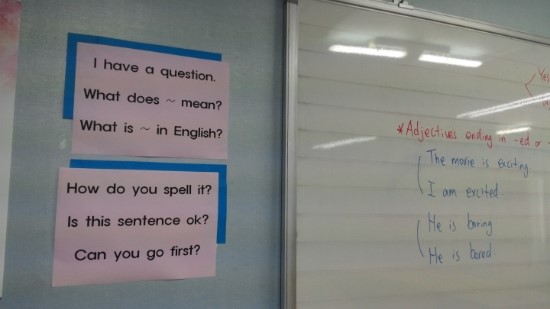 I have a question.
What does ~ mean?
What is ~ in English?
How do you spell it?
Is this sentence ok?
Can you go first?
*Adjectives ending in -ed or -
The movie is exciting
I am excited.
He is boring
He is bored.